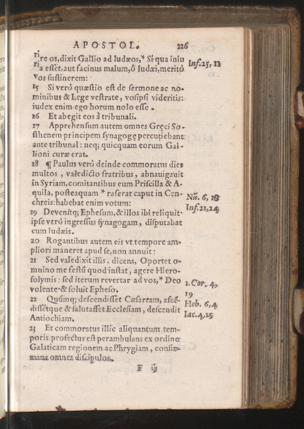 APOSTOL. 226
re os, dixit Gallio ad Iudæos, * Si qua iniu
ria esset, aut facinus malum, ô Iudæi, meritò
vos sustinerem:
15 Si verò quæstio est de sermone ac no-
minibus & Lege vestrate, vosipsi videritis:
iudex enim ego horum nolo esse.
16 Et abegit eos à tribunali.
17 Apprehensum autem omnes Gręci So-
sthenem principem synagogę percutiebant
ante tribunal: neq; quicquam eorum Gal-
lioni curæ erat.
18 ¶ Paulus verò deinde commoratus dies
multos, valedicto fratribus, abnauigauit
in Syriam, comitantibus eum Priscilla & A-
quila, posteaquam * raserat caput in Cen-
chreis: habebat enim votum:
19 Devenitq; Ephesum, & illos ibi reliquit:
ipse verò ingressus synagogam, disputabat
cum Iudæis.
20 Rogantibus autem eis vt tempore am-
pliori maneret apud se, non annuit:
21 Sed valedixit illis, dicens, Oportet o-
mnino me festū quod instat, agere Hiero-
solymis: sed iterum revertar ad vos, * Deo
volente. & soluit Epheso.
22 Quumq; descendisset Cæsaream, ascē-
disset, & salutasset Ecclesiam, descendit
Antiochiam.
23 Et commoratus illic aliquantum tem-
poris profectus est perambulans ex ordine
Galaticam regionem ac Phrygiam, confir-
mans omnes discipulos.
F
Inf. 25, 11
Nũ. 6, 18
Inf. 21, 24
1. Cor. 4,
19
Heb. 6, 4
Iac. 4, 15